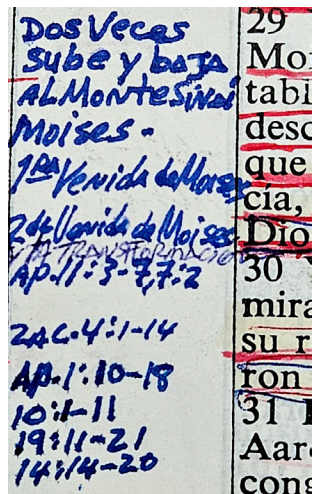 Dos Veces
sube y baja
AL Monte Sinai
Moises -
1ra Venida de Moises
2da Venida de Moises
TRANSFORMACION
AP. 11:3-7, 7:2
ZAC. 4:1-14
AP. 1:10-18
10:1-11
19:11-21
14:14-20
29
Moi
tabl
desc
que
cía,
Dio
30 Y
mira
su r
ron
31
Aaro
cong